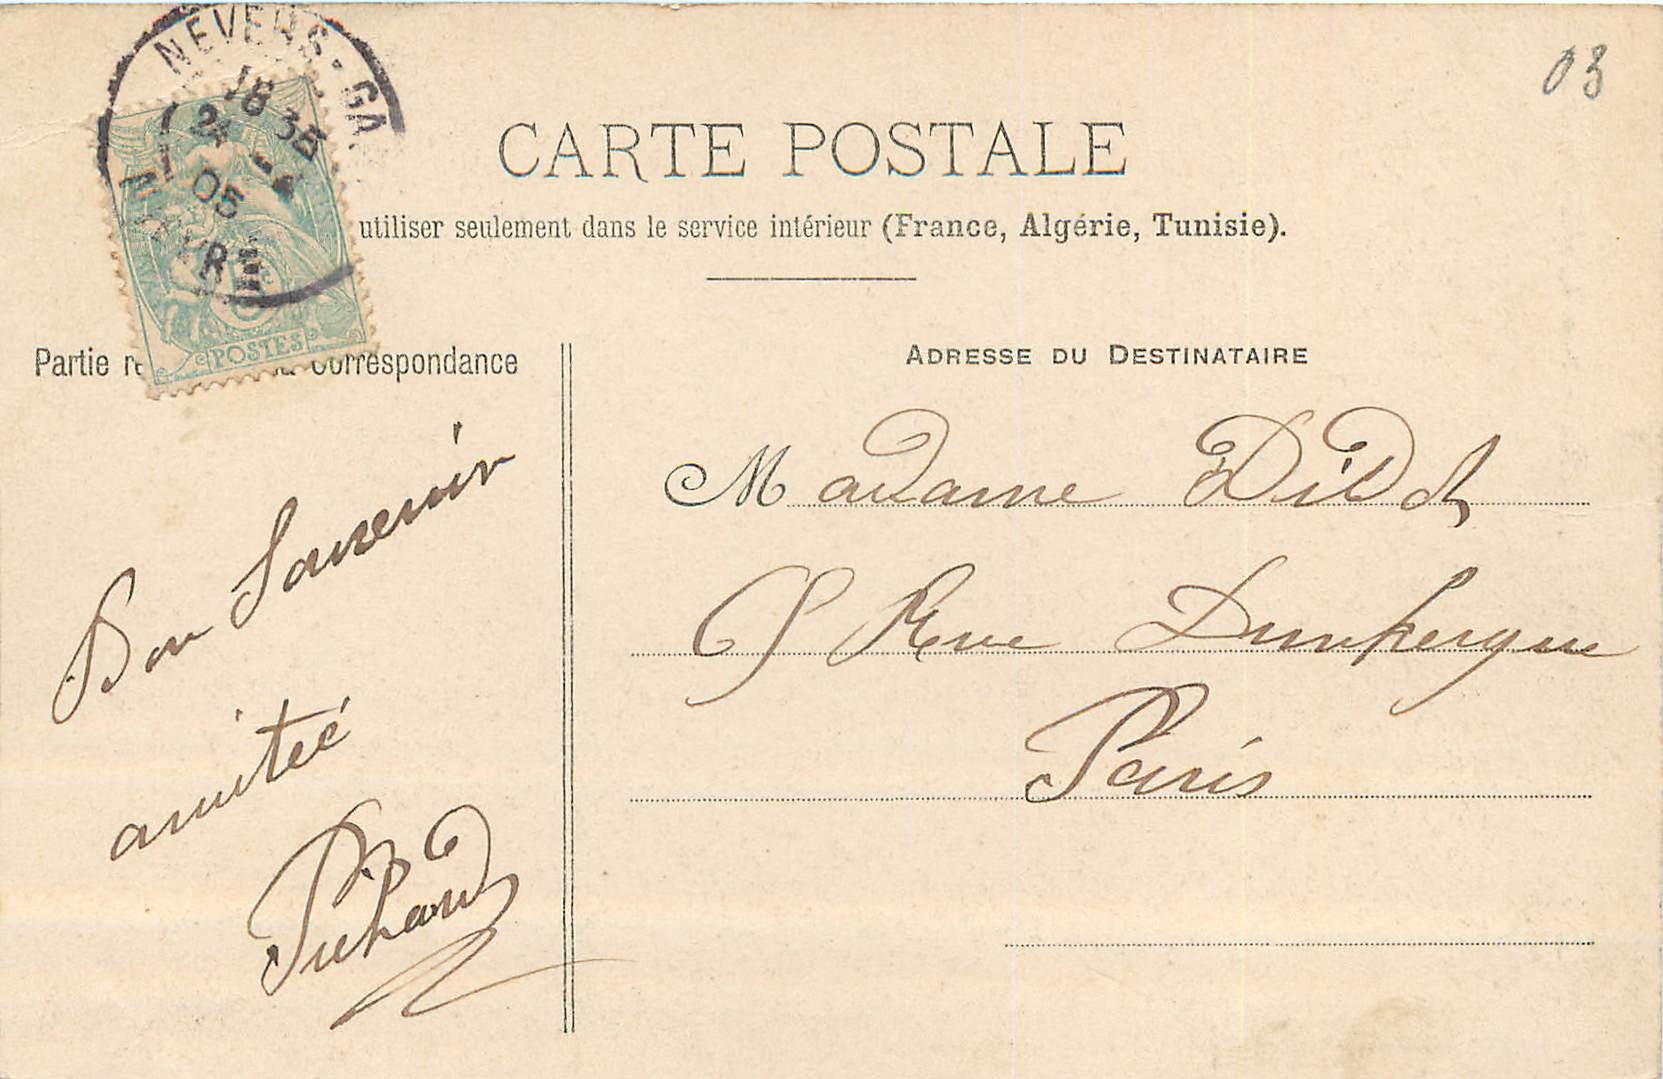 03
NEVERS-GA
18 35
24 -4
05
NIÈVRE
POSTES
CARTE POSTALE
utiliser seulement dans le service intérieur (France, Algérie, Tunisie).
Partie correspondance
ADRESSE DU DESTINATAIRE
Bon Souvenir
amitié
Madame
Rue Dunkerque
Paris